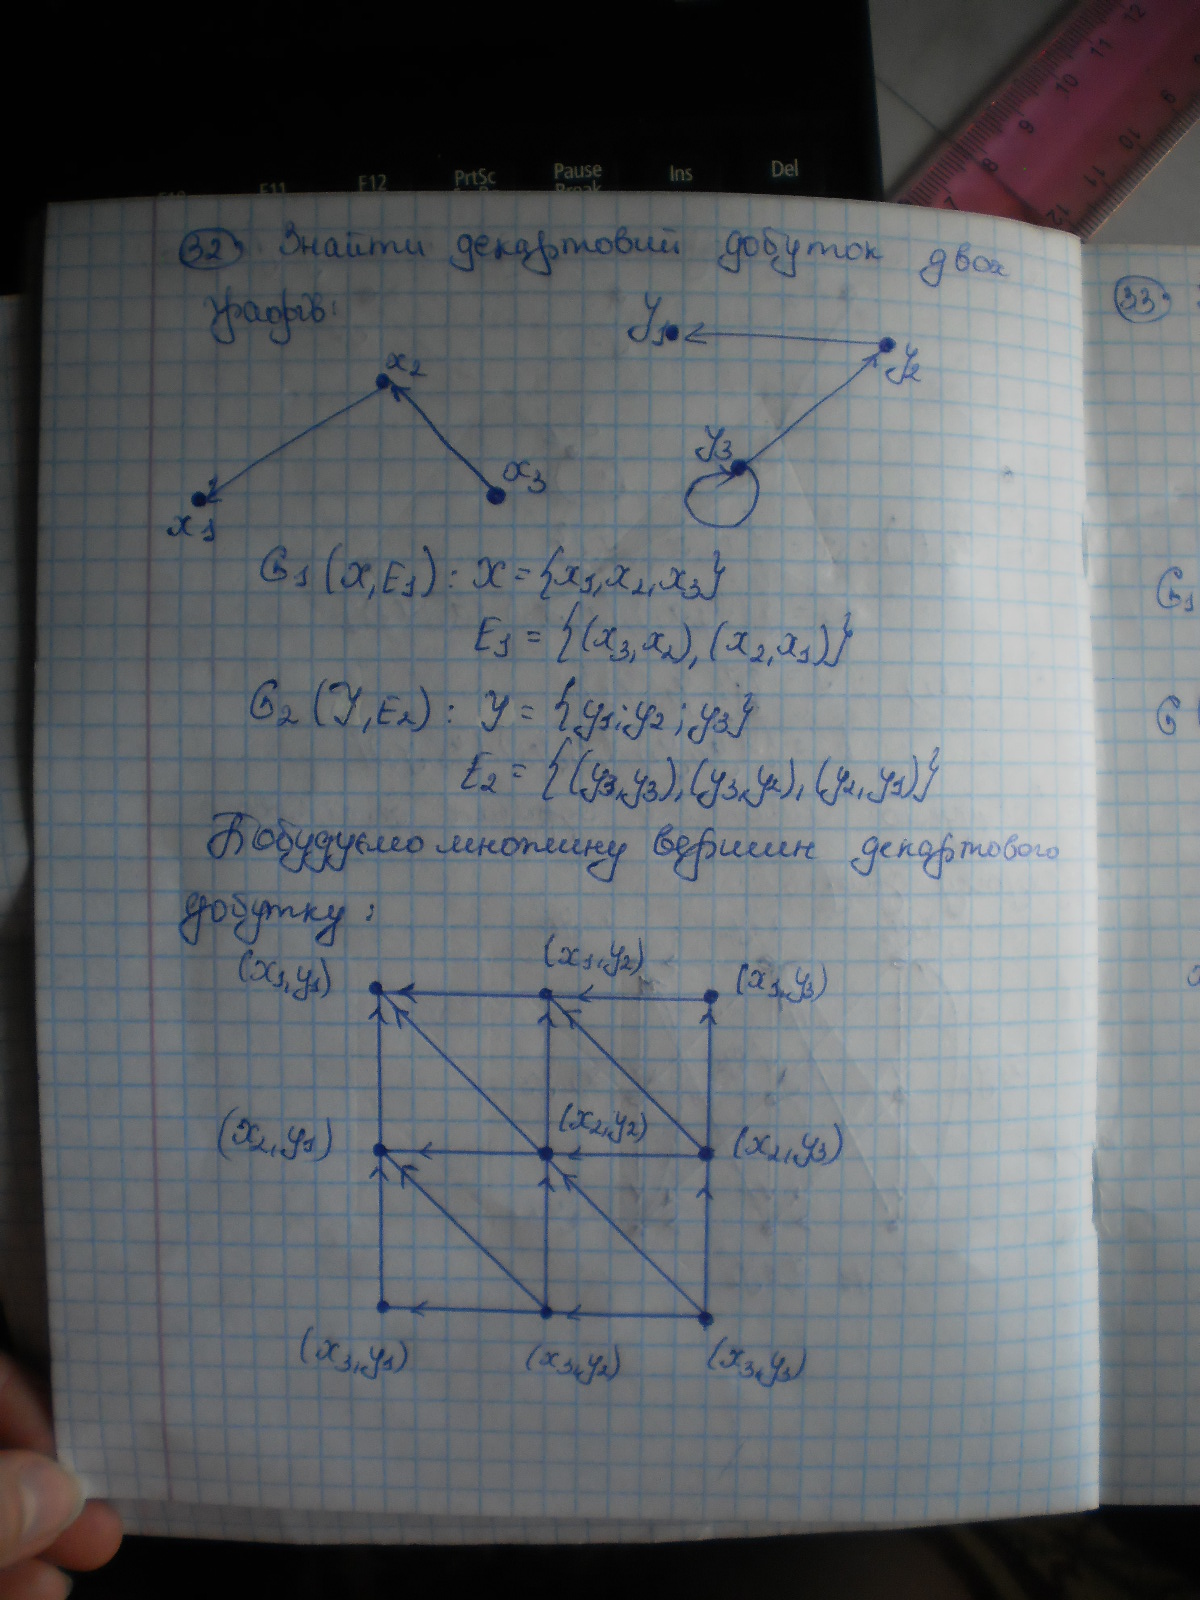 F11 F12 PrtSc Pause Ins Del
Break
12
11
10
9
8
7
9
10
11
12
32 Знайти декартовий добуток двох
графів:
y₁
x₂
y₂
y₃
x₃
x₁
G₁(X,E₁): X={x₁,x₂,x₃}
E₁={(x₃,x₂),(x₂,x₁)}
G₂(Y,E₂): Y={y₁;y₂;y₃}
E₂={(y₃,y₃),(y₃,y₂),(y₂,y₁)}
Побудуємо множину вершин декартового
добутку:
(x₁,y₁) (x₁,y₂) (x₁,y₃)
(x₂,y₁) (x₂,y₂) (x₂,y₃)
(x₃,y₁) (x₃,y₂) (x₃,y₃)
33
G₁
G